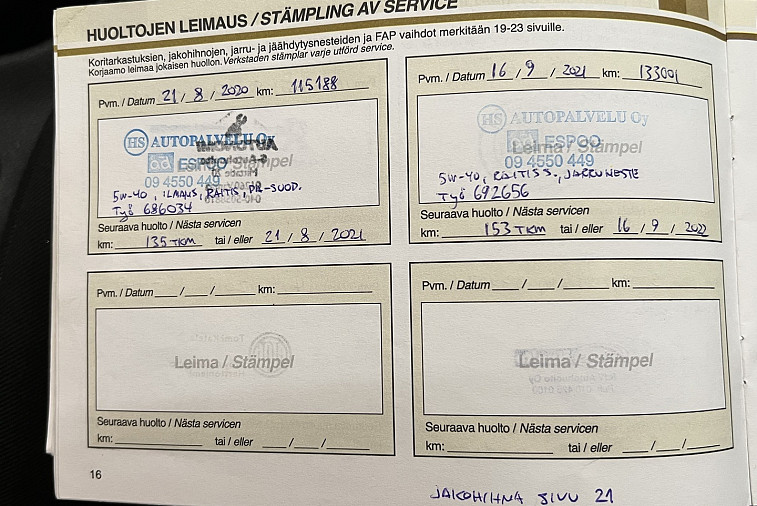 HUOLTOJEN LEIMAUS / STÄMPLING AV SERVICE
Koritarkastuksien, jakohihnojen, jarru- ja jäähdytysnesteiden ja FAP vaihdot merkitään 19-23 sivuille.
Korjaamo leimaa jokaisen huollon. Verkstaden stämplar varje utförd service.
Pvm. / Datum 21 / 8 / 2020 km: 115188
HS AUTOPALVELU Oy
ESPOO
Leima / Stämpel
09 4550 449
5W-40, ILMANS, RAITIS, PA-SUOD.
Työ 686034
Seuraava huolto / Nästa servicen
km: 135 TKM tai / eller 21 / 8 / 2021
Pvm. / Datum 16 / 9 / 2021 km: 133001
HS AUTOPALVELU Oy
ESPOO
Leima / Stämpel
09 4550 449
5W-40, RAITIS S., JARRUNESTE
Työ 692656
Seuraava huolto / Nästa servicen
km: 153 TKM tai / eller 16 / 9 / 2022
Pvm. / Datum ___ / ___ / ___ km:
Leima / Stämpel
Seuraava huolto / Nästa servicen
km: tai / eller ___ / ___ / ___
Pvm. / Datum ___ / ___ / ___ km:
Leima / Stämpel
Seuraava huolto / Nästa servicen
km: tai / eller ___ / ___ / ___
16
JAKOHIHNA SIVU 21